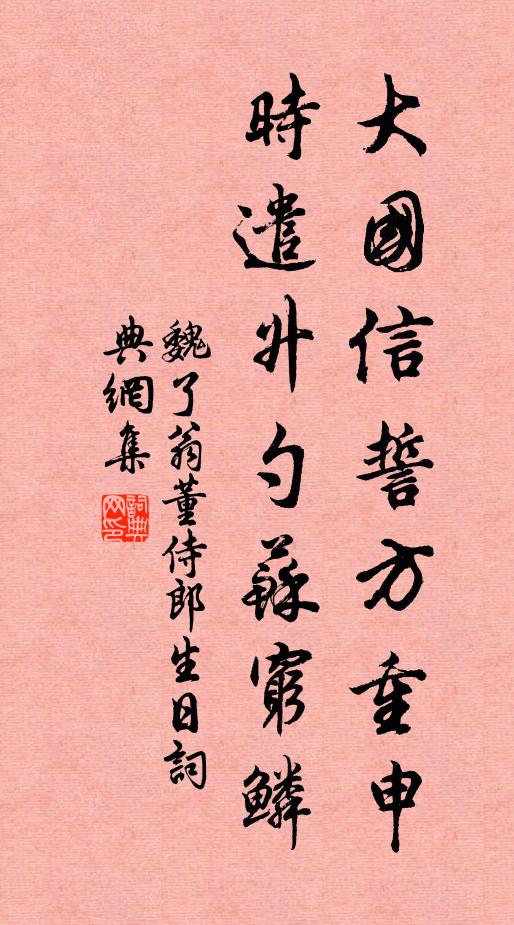 大國信誓方重申
時遣升勺蘇窮鱗
魏了翁董侍郎生日詞
典網集
詞典网印